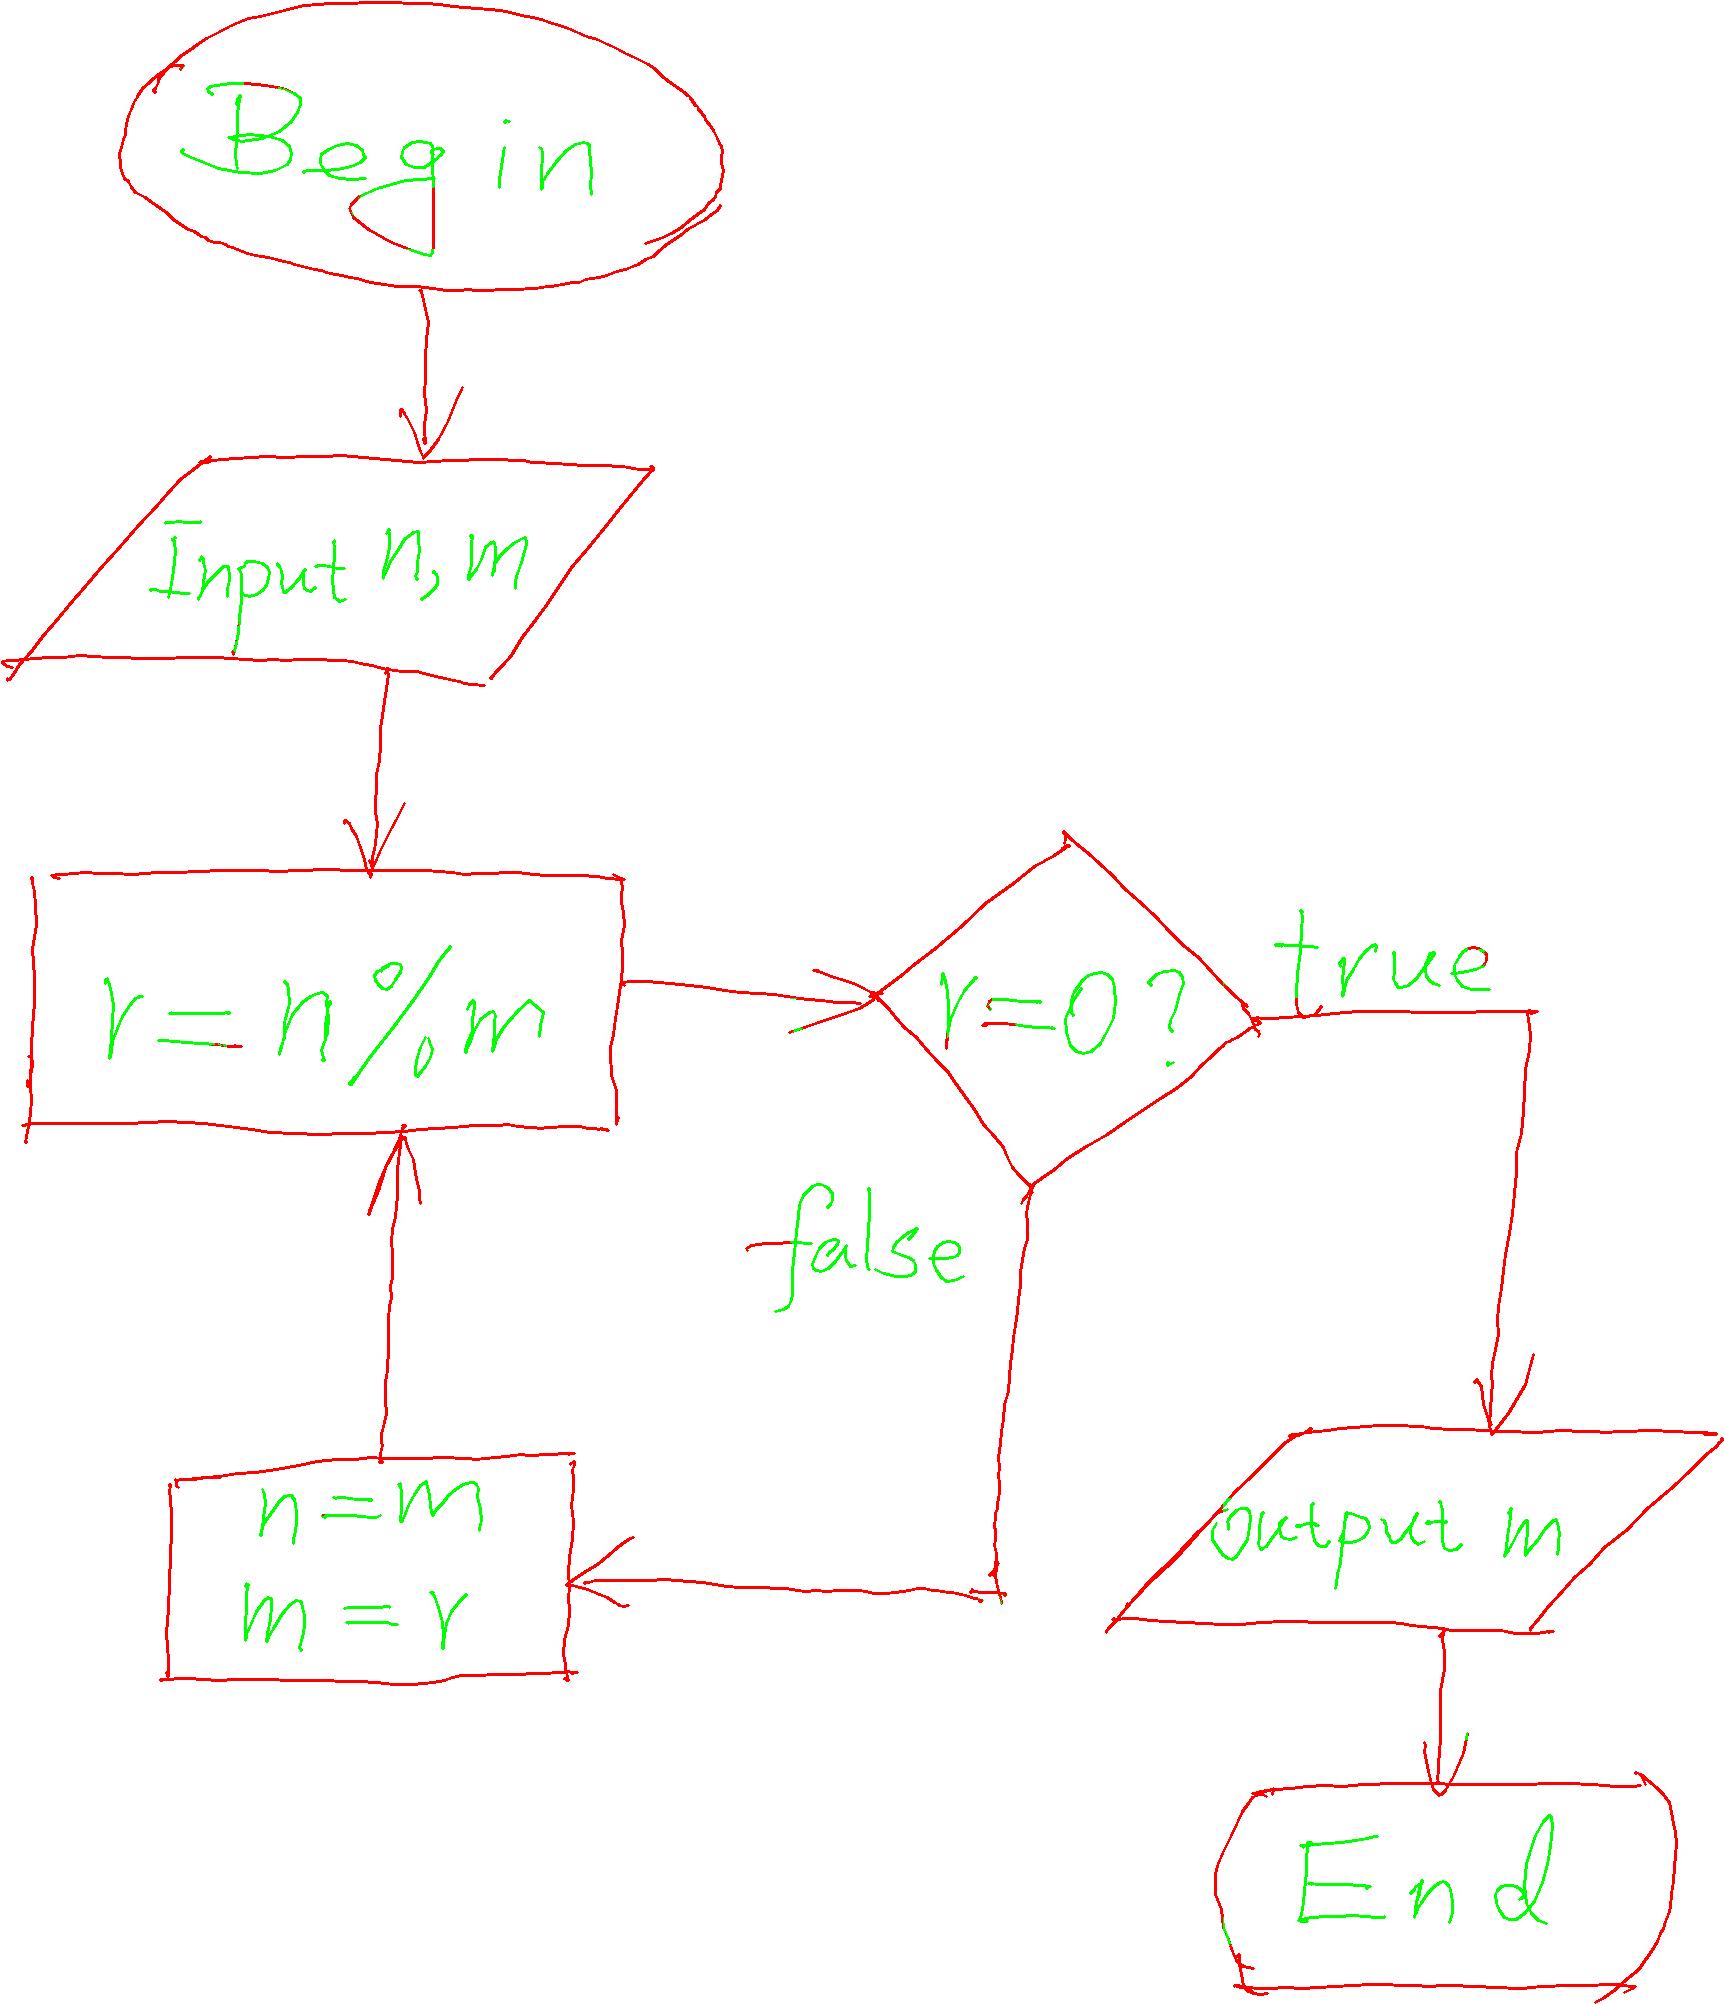 Begin
Input n, m
r = n % m
r = 0 ?
true
false
n = m
m = r
output m
End